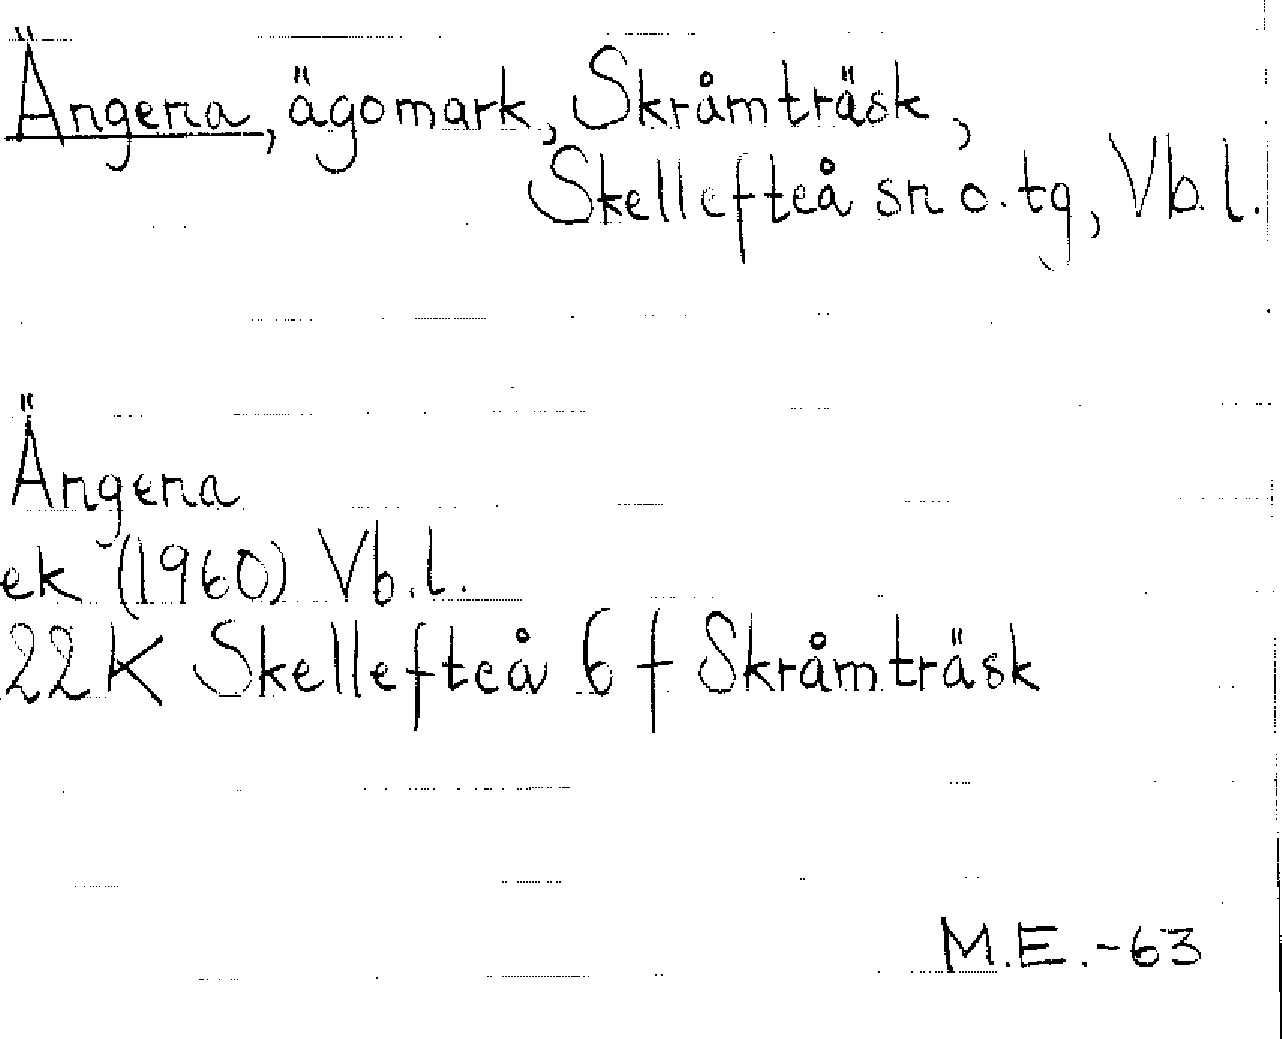 Ängena, ägomark, Skråmträsk,
Skellefteå sn o. tg, Vb.l.
Ängena
ek (1960) Vb.l.
22K Skellefteå 6 f Skråmträsk
M.E.-63